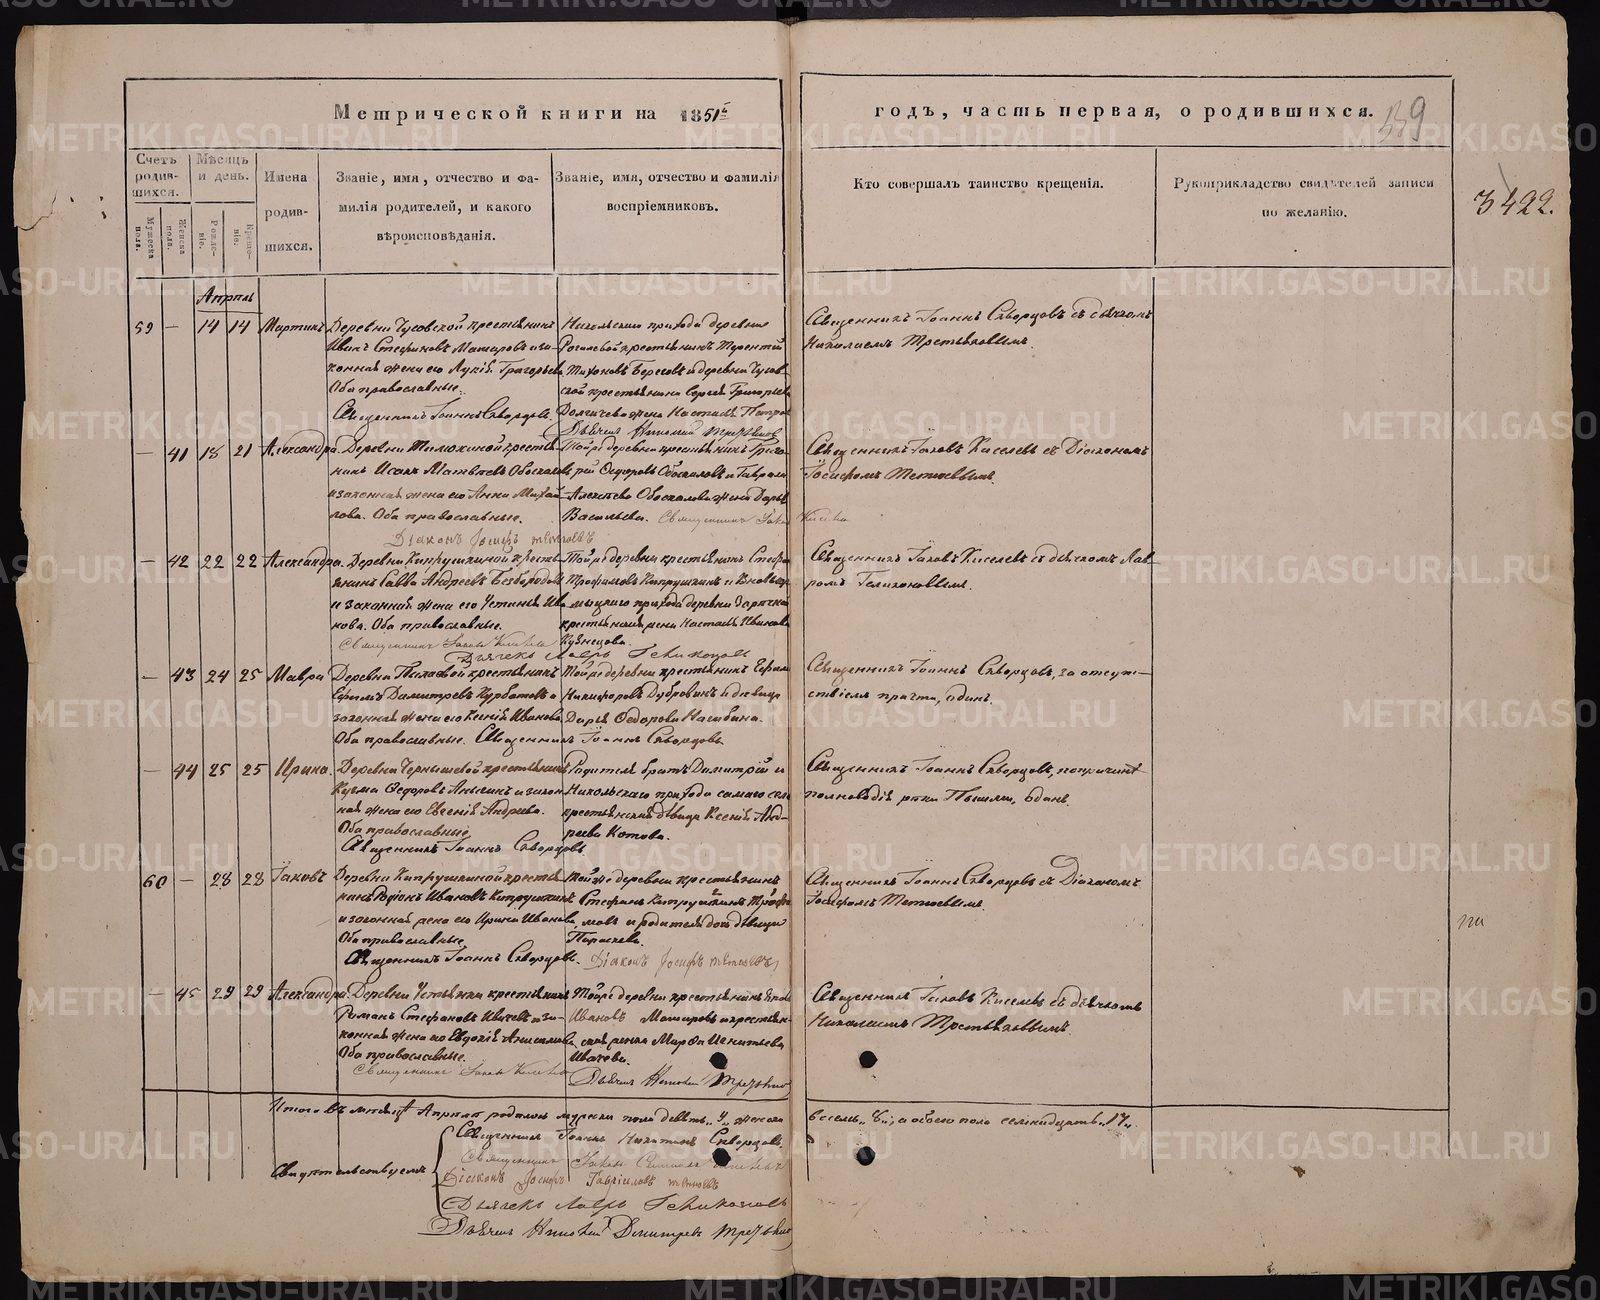 Метрической книги на 1851й
годъ, часть первая, о родившихся.
139
3422.
Счетъ родив-шихся.
Мужеска пола.
Женска пола.
Мѣсяцъ и день.
Рожде-нiе.
Креще-нiе.
Имена родив-шихся.
Званiе, имя, отчество и фа-
милiя родителей, и какого
вѣроисповѣданiя.
Званiе, имя, отчество и фамилiя
воспрiемниковъ.
Кто совершалъ таинство крещенiя.
Рукоприкладство свидѣтелей записи
по желанiю.
Апрѣль
59 — 14 14 Мартинъ
Деревни Чусовской крестьянинъ
Иванъ Стефановъ Машаровъ и за-
конная жена его Лукiя Григорьева
Оба православные.
Священникъ Iоаннъ Скворцовъ.
Никольскаго прихода деревни
крестьянинъ Терентiй
Тихоновъ и деревни Чусов-
ской крестьянина Сергея Григорьева
жена Настасья Петрова
Дьячекъ Николай Третьяковъ
Священникъ Iоаннъ Скворцовъ съ дьячкомъ
Николаемъ Третьяковымъ.
— 41 18 21 Александра.
Деревни крестья-
нинъ Исакъ Матвѣевъ Обоскаловъ
и законная жена его Анна Михай-
лова. Оба православные.
Дiаконъ Iосифъ
Той же деревни крестьянинъ Григо-
рiй Федоровъ Обоскаловъ и Гаврила
Алексѣева Обоскалова жена Дарья
Васильева. Священникъ Iаковъ Киселевъ
Священникъ Iаковъ Киселевъ съ Дiакономъ
Iосифомъ
— 42 22 22 Александра.
Деревни Кипрушкиной кресть-
янинъ Савва Андреевъ Безбородовъ
и законная жена его Устинья Ива-
нова. Оба православные.
Священникъ Iаковъ Киселевъ
Дьячекъ Лавръ Геликоновъ
Той же деревни крестьянинъ Стефанъ
Трофимовъ Кипрушкинъ и
прихода деревни Заречной
крестьянская жена Настасья Иванова
Кузнецова.
Священникъ Iаковъ Киселевъ съ дьячкомъ Лав-
ромъ Геликоновымъ.
— 43 24 25 Мавра
Деревни крестьянинъ
Ефимъ Димитрiевъ Курбатовъ и
законная жена его Ксенiя Иванова
Оба православные. Священникъ Iоаннъ Скворцовъ.
Той же деревни крестьянинъ Ефимъ
Никифоровъ Дубровинъ и девица
Дарья Федорова Насибина.
Священникъ Iоаннъ Скворцовъ, за отсут-
ствiемъ причта, одинъ.
— 44 25 25 Ирина.
Деревни Чернышевой крестьянинъ
Кузьма Федоровъ Аньгинъ и закон-
ная жена его Евгенiя Андреева.
Оба православные.
Священникъ Iоаннъ Скворцовъ.
Родителя братъ Димитрiй и
Никольскаго прихода самаго села
крестьянская дѣвица Ксенiя Анд-
реева Котова.
Священникъ Iоаннъ Скворцовъ, по причинѣ
полноводiя рѣки Пышмы, одинъ.
60 — 28 28 Iаковъ
Деревни Кипрушкиной кресть-
янинъ Родiонъ Ивановъ Кипрушкинъ
и законная жена его Ирина Иванова,
Оба православные.
Священникъ Iоаннъ Скворцовъ.
Той же деревни крестьянинъ
Стефанъ Кипрушкинъ Трофи-
мовъ и родителя дочь дѣвица
Параскева.
Дiаконъ Iосифъ
Священникъ Iоаннъ Скворцовъ съ Дiакономъ
Iосифомъ
— 45 29 29 Александра.
Деревни Устьянки крестьянинъ
Романъ Стефановъ Ивачевъ и за-
конная жена его Евдокiя Анисимова,
Оба православные.
Священникъ Iаковъ Киселевъ
Той же деревни крестьянинъ
Ивановъ Машаровъ и крестьян-
ская жена Марфа Игнатьева
Ивачева.
Дьячекъ Николай Третьяковъ
Священникъ Iаковъ Киселевъ съ дьячкомъ
Николаемъ Третьяковымъ
Итого въ мѣсяцѣ Апрѣлѣ родилось мужеска пола девять „9„ женска
восемь „8„; а обоего пола семнадцать „17„.
Свидѣтельствуемъ
Священникъ Iоаннъ Никитинъ Скворцовъ.
Священникъ Iаковъ Киселевъ
Дiаконъ Iосифъ Гаврiиловъ
Дьячекъ Лавръ Геликоновъ
Дьячекъ Николай Димитрiевъ Третьяковъ
METRIKI.GASO-URAL.RU